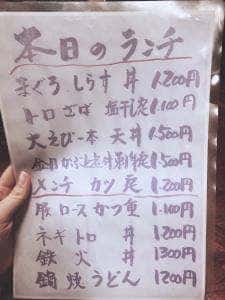 本日のランチ
まぐろ しらす 丼 1.200円
トロさば 塩干し定 1.100円
大えび一本 天丼 1.500円
刺身定 1.500円
メンチカツ定 1.200円
豚ロースかつ重 1.100円
ネギトロ 丼 1200円
鉄火 丼 1300円
鍋焼うどん 1200円